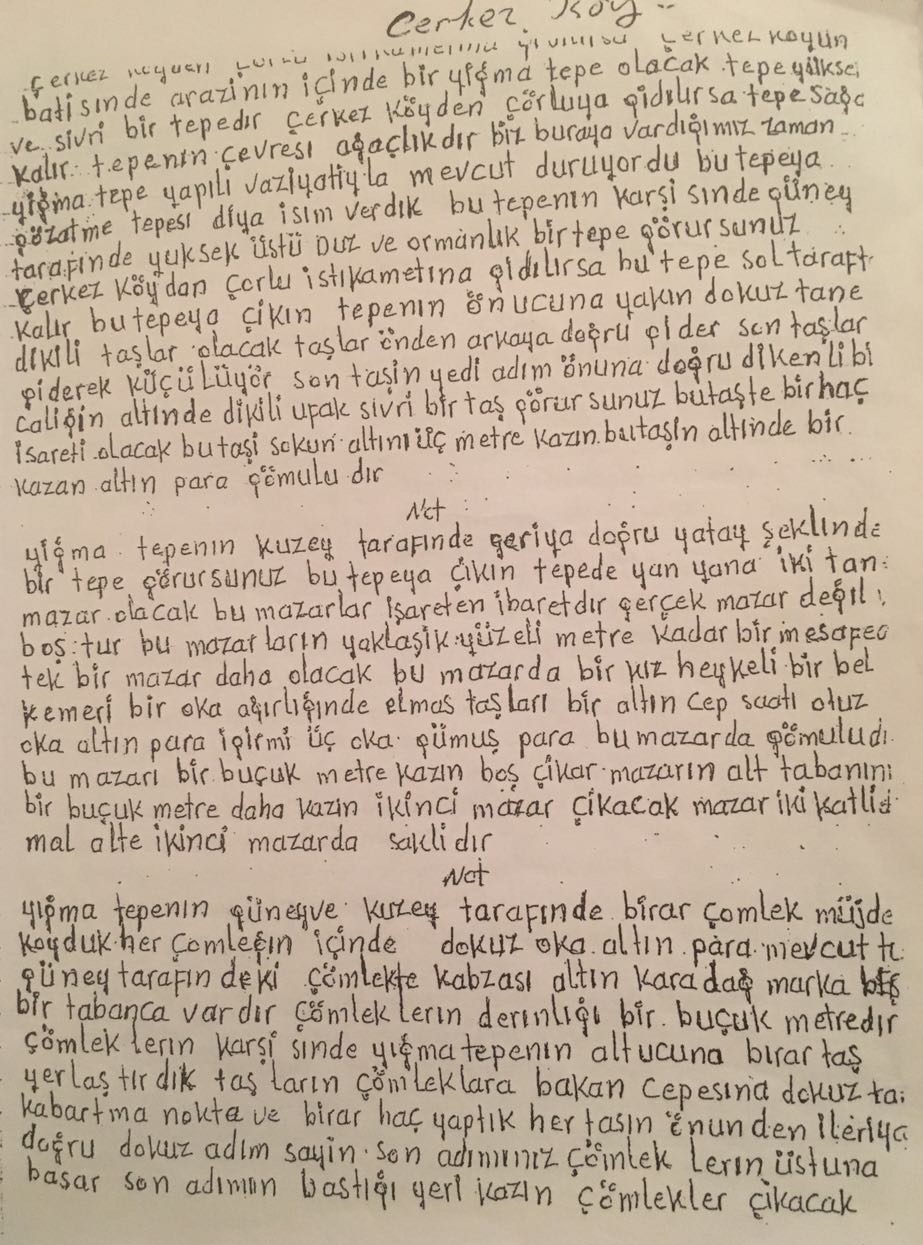 Çerkez Köy
Çerkez köyden çorlu istikametina gidilirsa Çerkez köyün
batisinde arazinin içinde bir yiğma tepe olacak tepe yükse
ve sivri bir tepedir Çerkez köyden çorluya gidilirsa tepe sağa
kalır tepenin çevresi ağaçlikdir biz buraya vardığımız zaman
yiğma tepe yapili vaziyatiyla mevcut duruyordu bu tepeya
gözatme tepesi diya isim verdik bu tepenin karşi sinde güney
tarafinde yuksek üstü Duz ve ormanlık bir tepe görursunuz
Çerkez köydan çorlu istikametina gidilirsa bu tepe sol taraft
kalır bu tepeya çikin tepenin önucuna yakın dokuz tane
dikili taşlar olacak taşlar önden arkaya doğru gider son taşlar
giderek küçülüyör son taşin yedi adım önuna doğru dikenli bi
caliğin altinde dikili ufak sivri bir taş görursunuz bu taşte bir haç
isareti olacak bu taşi sokun altını üç metre kazın bu taşin altinde bir
kazan altın para gömulu dir
Not
yiğma tepenin kuzey tarafinde geriya doğru yatay şeklinde
bir tepe görursunuz bu tepeya çikin tepede yan yana iki tan
mazar olacak bu mazarlar işareten ibaretdir gerçek mazar değil
boş tur bu mazarların yaklaşik yüzeli metre kadar bir mesafeo
tek bir mazar daha olacak bu mazarda bir kız heykeli bir bel
kemeri bir oka ağırlığinde elmas taşları bir altın cep saati otuz
oka altın para igirmi üç oka gümuş para bu mazarda gömuludı
bu mazarı bir buçuk metre kazın boş çikar mazarın alt tabanını
bir buçuk metre daha kazın ikinci mazar çikacak mazar iki katlid
mal alte ikinci mazarda saklidir
Not
yiğma tepenin güney ve kuzey tarafinde birar çomlek müjde
koyduk her çomleğin içinde dokuz oka altın para mevcut tı
güney tarafin deki çömlekte kabzası altın karadağ marka
bir tabanca vardır çömlek lerin derinliği bir buçuk metredir
çömlek lerin karşi sinde yiğma tepenin alt ucuna birar taş
yerlaş tirdik taş ların çömleklara bakan cepesina dokuz ta
kabartma nokta ve birar haç yaptik her taşin önun den ileriya
doğru dokuz adim sayin son adiminiz çömlek lerin üstuna
basar son adimin bastiği yeri kazın çömlekler çikacak